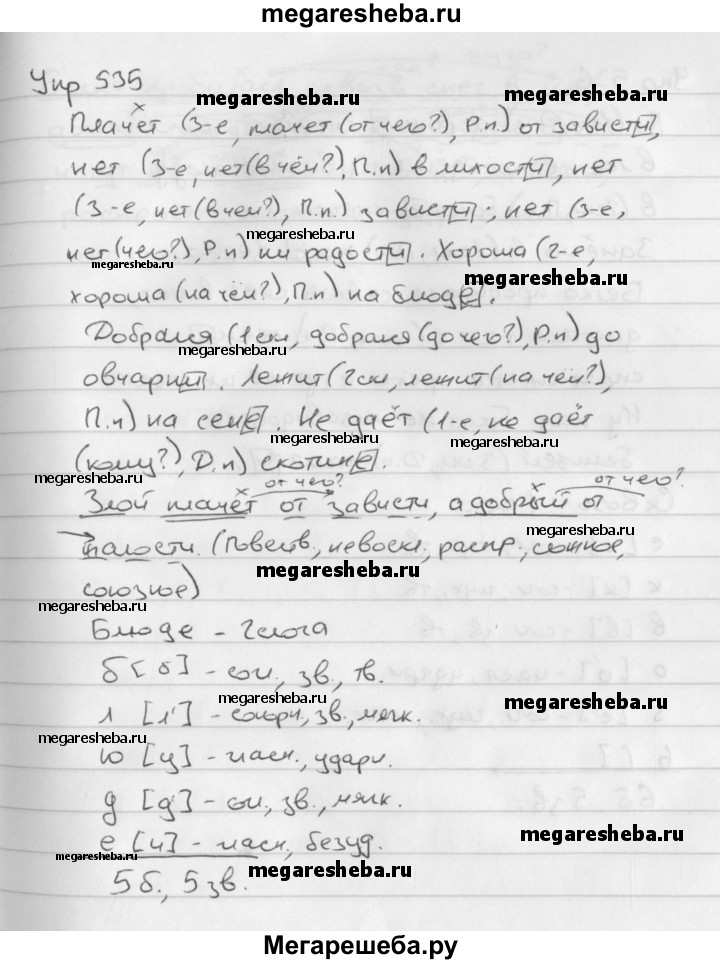 megaresheba.ru
Упр 535
Плачет (3-е, плачет (от чего?), Р.п.) от зависти,
megaresheba.ru megaresheba.ru
нет (3-е, нет (в чём?), П.п) в милости, нет
(3-е, нет (в чем?), П.п.) зависти; нет (3-е,
megaresheba.ru
нет (чего?), Р.п) ни радости. Хороша (2-е,
megaresheba.ru megaresheba.ru
хороша (на чём?), П.п) на блюде.
Добрался (1 скл, добрался (до чего?), Р.п) до
megaresheba.ru megaresheba.ru
овчарни. Лежит (2 скл, лежит (на чём?),
П.п) на сене. Не даёт (1-е, не даёт
megaresheba.ru megaresheba.ru
(кому?), Д.п) скотине.
megaresheba.ru
от чего? от чего?
Злой плачет от зависти, а добрый от
megaresheba.ru
радости. (Повеств., невоскл., распр., сложное,
megaresheba.ru
союзное)
megaresheba.ru
Блюде - 2 слога
б [б] - согл., зв., тв.
megaresheba.ru megaresheba.ru
л [л'] - согл., зв., мягк.
megaresheba.ru
ю [у] - гласн., ударн.
д [д'] - согл., зв., мягк.
megaresheba.ru
е [и] - гласн., безуд.
megaresheba.ru megaresheba.ru
5 б., 5 зв.
Мегарешеба.ру